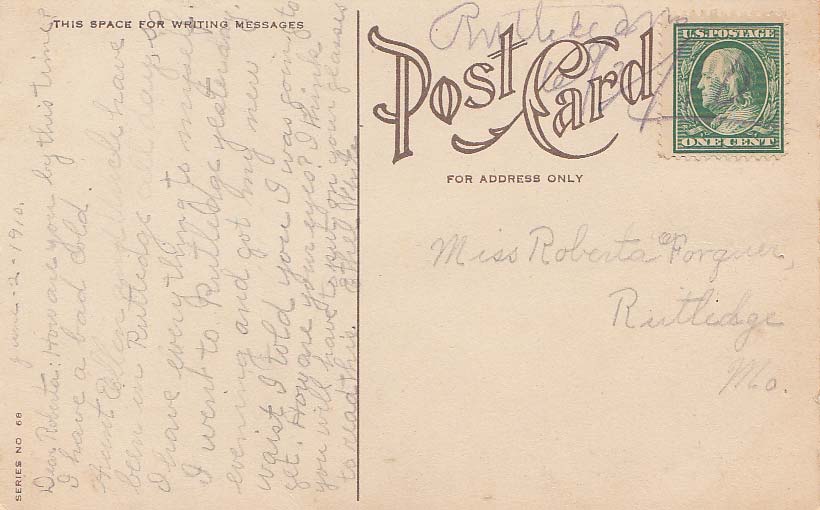 THIS SPACE FOR WRITING MESSAGES
June-2-1910.
Dear Roberta: How are you by this time?
I have a bad cold.
Aunt Ellen and have
been in Rutledge all day, so
I have everything to myself.
I went to Rutledge yesterday
evening and got my new
waist I told you I was going to
get. How are your eyes? I think
you will have to put on your glasses
to read this. Ethel
SERIES NO 68
Post Card
Rutledge Mo
U.S. POSTAGE
ONE CENT
FOR ADDRESS ONLY
Miss Roberta Forquer,
Rutledge
Mo.